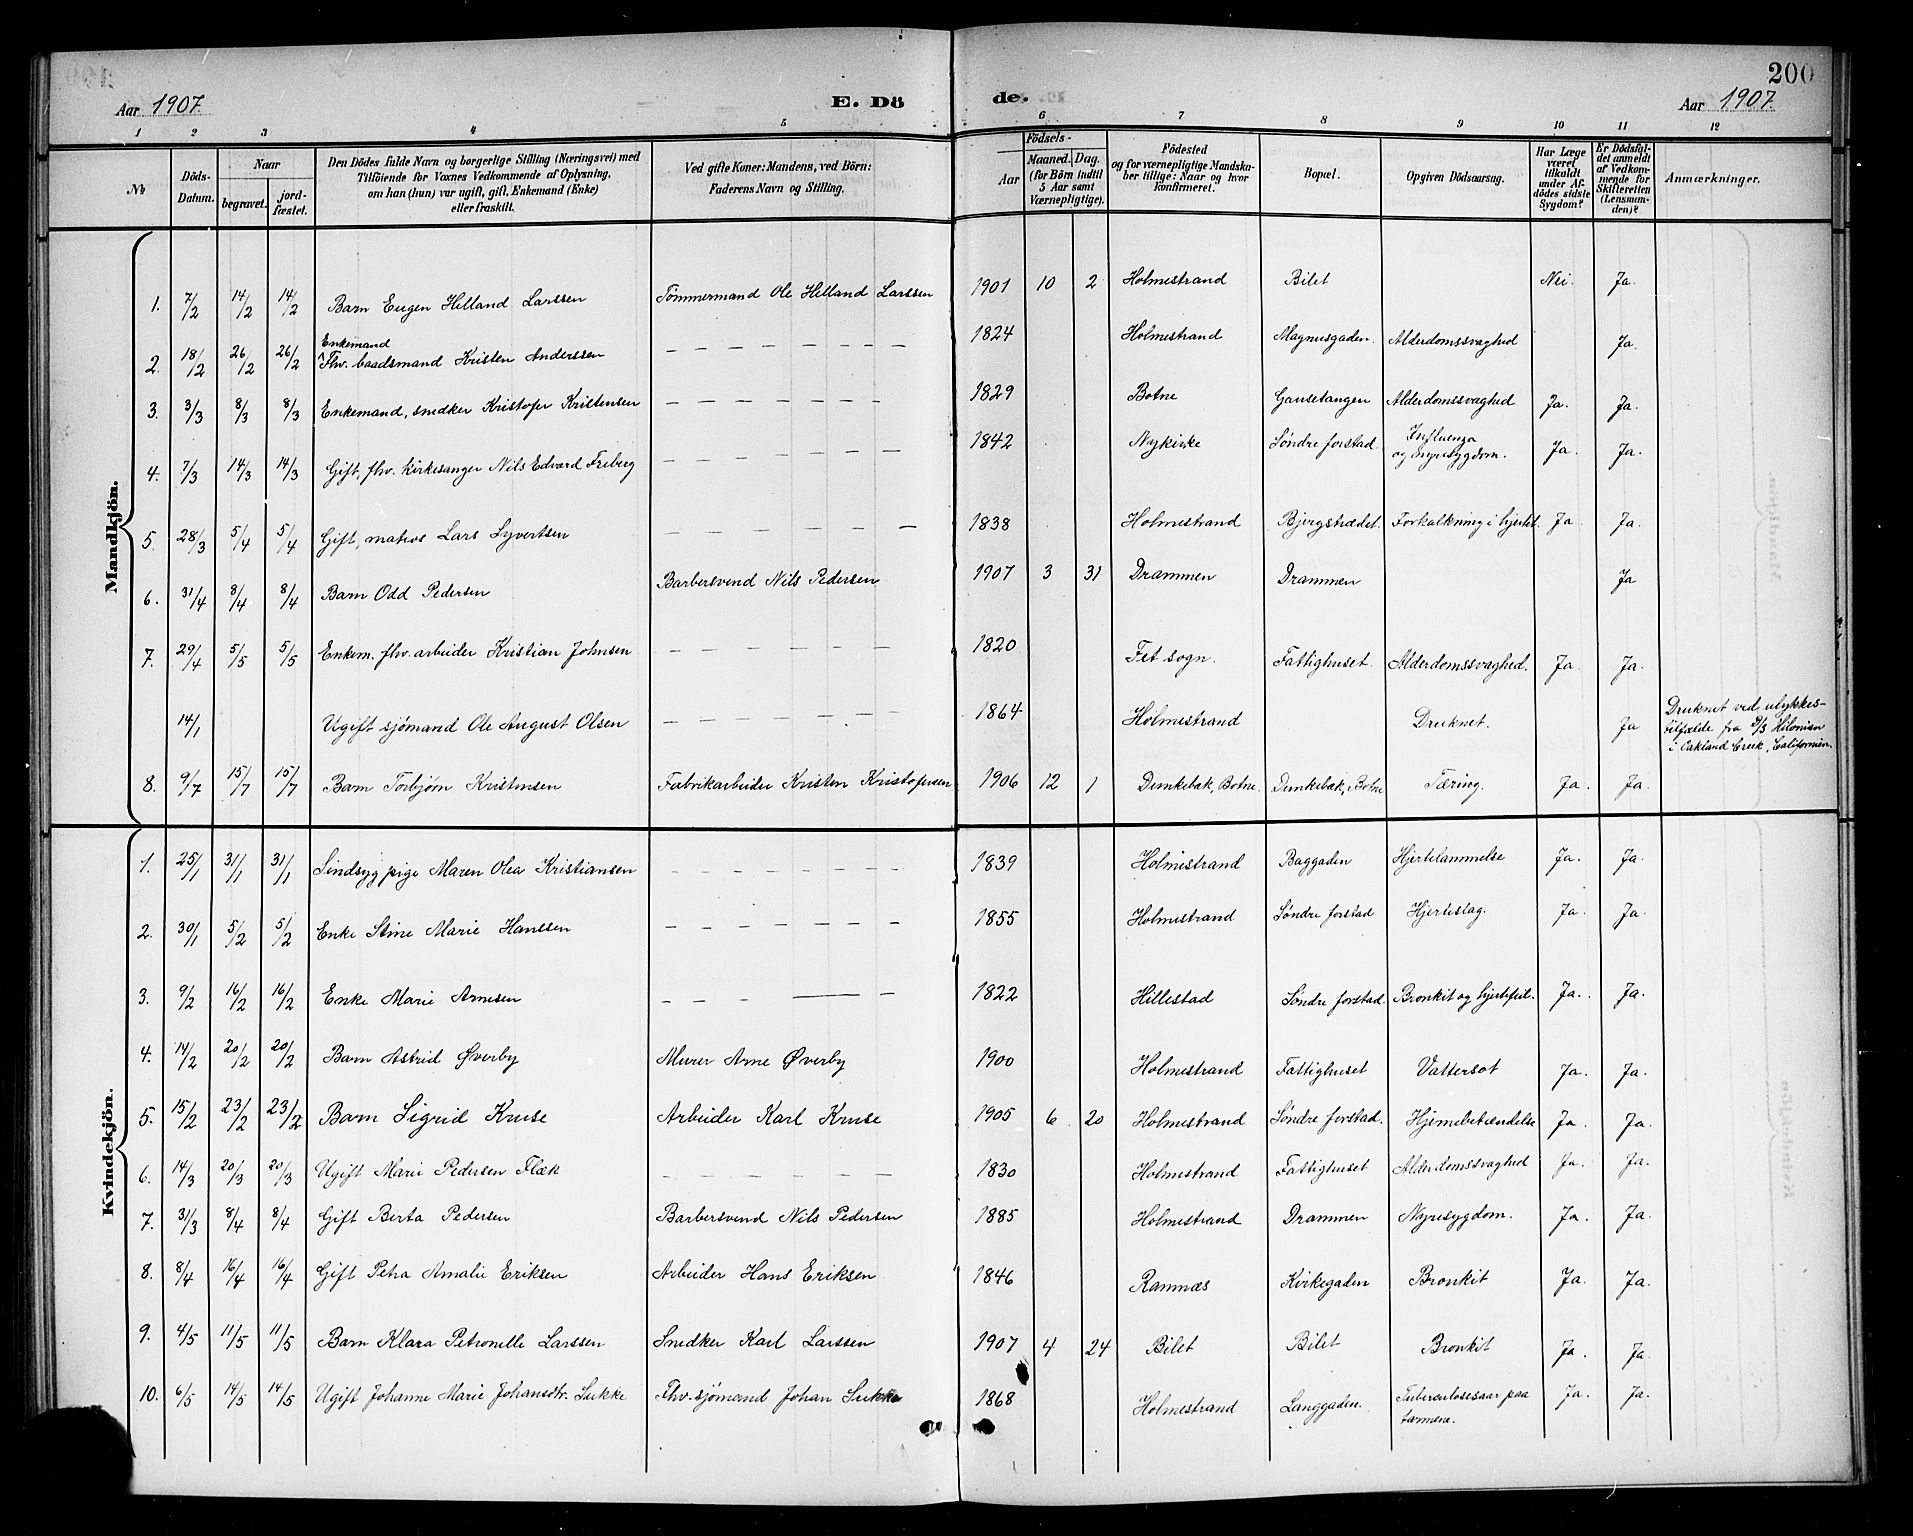 200
Aar 1907. E. Dö de. Aar 1907.
1 2 3 4 5 6 7 8 9 10 11 12
No
Döds-Datum.
Naar
begravet.
jordfæstet.
Den Dödes fulde Navn og borgerlige Stilling (Næringsvei) med
Tilföiende for Voxnes Vedkommende af Oplysning,
om han (hun) var ugift, gift, Enkemand (Enke)
eller fraskilt.
Ved gifte Koner: Mandens, ved Börn:
Faderens Navn og Stilling.
Födsels-
Aar
Maaned. Dag.
(for Börn indtil
5 Aar samt
Værnepligtige).
Födested
og for værnepligtige Mandskaber tillige: Naar og hvor
konfirmeret.
Bopæl.
Opgiven Dödsaarsag.
Har Læge
været
tilkaldt
under Afdödes sidste
Sygdom?
Er Dödsfaldet anmeldt
af Vedkommende for
Skifteretten
(Lensmanden)?
Anmærkninger.
Mandkjön.
1. 7/2 14/2 14/2 Barn Eugen Helland Larssen Tömmermand Ole Helland Larssen 1901 10 2 Holmestrand Bilet Nei. Ja.
Enkemand
2. 18/2 26/2 26/2 Fhv. baadsmand Kristen Anderssen — — — — — — 1824 Holmestrand Magnusgaden. Alderdomssvaghed Ja.
3. 3/3 8/3 8/3 Enkemand, snedker Kristofer Kristensen — — — — — — 1829 Botne Gausetangen Alderdomssvaghed Ja. Ja.
4. 7/3 14/3 14/3 Gift, fhv. kirkesanger Nils Edvard Friberg — — — — — — 1842 Nykirke Søndre forstad. Influenza og nyresygdom. Ja. Ja.
5. 28/3 5/4 5/4 Gift, matros Lars Syvertsen — — — — — 1838 Holmestrand Bjergstrædet. Forkalkning i hjertet. Ja Ja.
6. 31/4 8/4 8/4 Barn Odd Pedersen Barbersvend Nils Pedersen 1907 3 31 Drammen Drammen Ja
7. 29/4 5/5 5/5 Enkem. fhv. arbeider Kristian Johnsen — — — — — — 1820 Fet sogn. Fattighuset. Alderdomssvaghed. Ja Ja.
14/1 Ugift sjömand Ole August Olsen — — — — — — 1864 Holmestrand Druknet. Ja Druknet ved ulykkes-
tilfælde fra D/S
i Oakland Creek, Californien.
8. 9/7 15/7 15/7 Barn Torbjørn Kristensen Fabrikarbeider Kristen Kristofersen 1906 12 1 Dunkebæk, Botne. Dunkebæk, Botne Tæring. Ja. Ja.
Kvindekjön.
1. 25/1 31/1 31/1 Sindsyg pige Maren Olea Kristiansen — — — — — — — 1839 Holmestrand Baggaden Hjertelammelse Ja. Ja.
2. 30/1 5/2 5/2 Enke Stine Marie Hanssen — — — — — — — 1855 Holmestrand Søndre forstad Hjerteslag. Ja. Ja.
3. 9/2 16/2 16/2 Enke Marie Arnesen — — — — — 1822 Hillestad Søndre forstad. Bronkit og hjertefeil. Ja. Ja.
4. 14/2 20/2 20/2 Barn Astrid Øverby Murer Arne Øverby 1900 Holmestrand Fattighuset Vattersot Ja. Ja.
5. 15/2 23/2 23/2 Barn Sigrid Kruse Arbeider Karl Kruse 1905 6 20 Holmestrand Søndre forstad. Hjernebetændelse Ja. Ja.
6. 14/3 20/3 20/3 Ugift Marie Pedersen Flæk — — — — — — — 1830 Holmestrand Fattighuset Alderdomssvaghed Ja. Ja.
7. 31/3 8/4 8/4 Gift Berta Pedersen Barbersvend Nils Pedersen 1885 Holmestrand Drammen Nyresygdom. Ja. Ja.
8. 8/4 16/4 16/4 Gift Petra Amalie Eriksen Arbeider Hans Eriksen 1846 Ramnæs Kirkegaden Bronkit Ja. Ja.
9. 4/5 11/5 11/5 Barn Klara Petronelle Larssen Snedker Karl Larssen 1907 4 24 Bilet Bilet Bronkit Ja. Ja.
10. 6/5 14/5 14/5 Ugift Johanne Marie Johansdtr. Sukke Fhv. sjömand Johan Sukke 1868 Holmestrand Langgaden. Tuberculosesaar paa
tarmene. Ja. Ja.